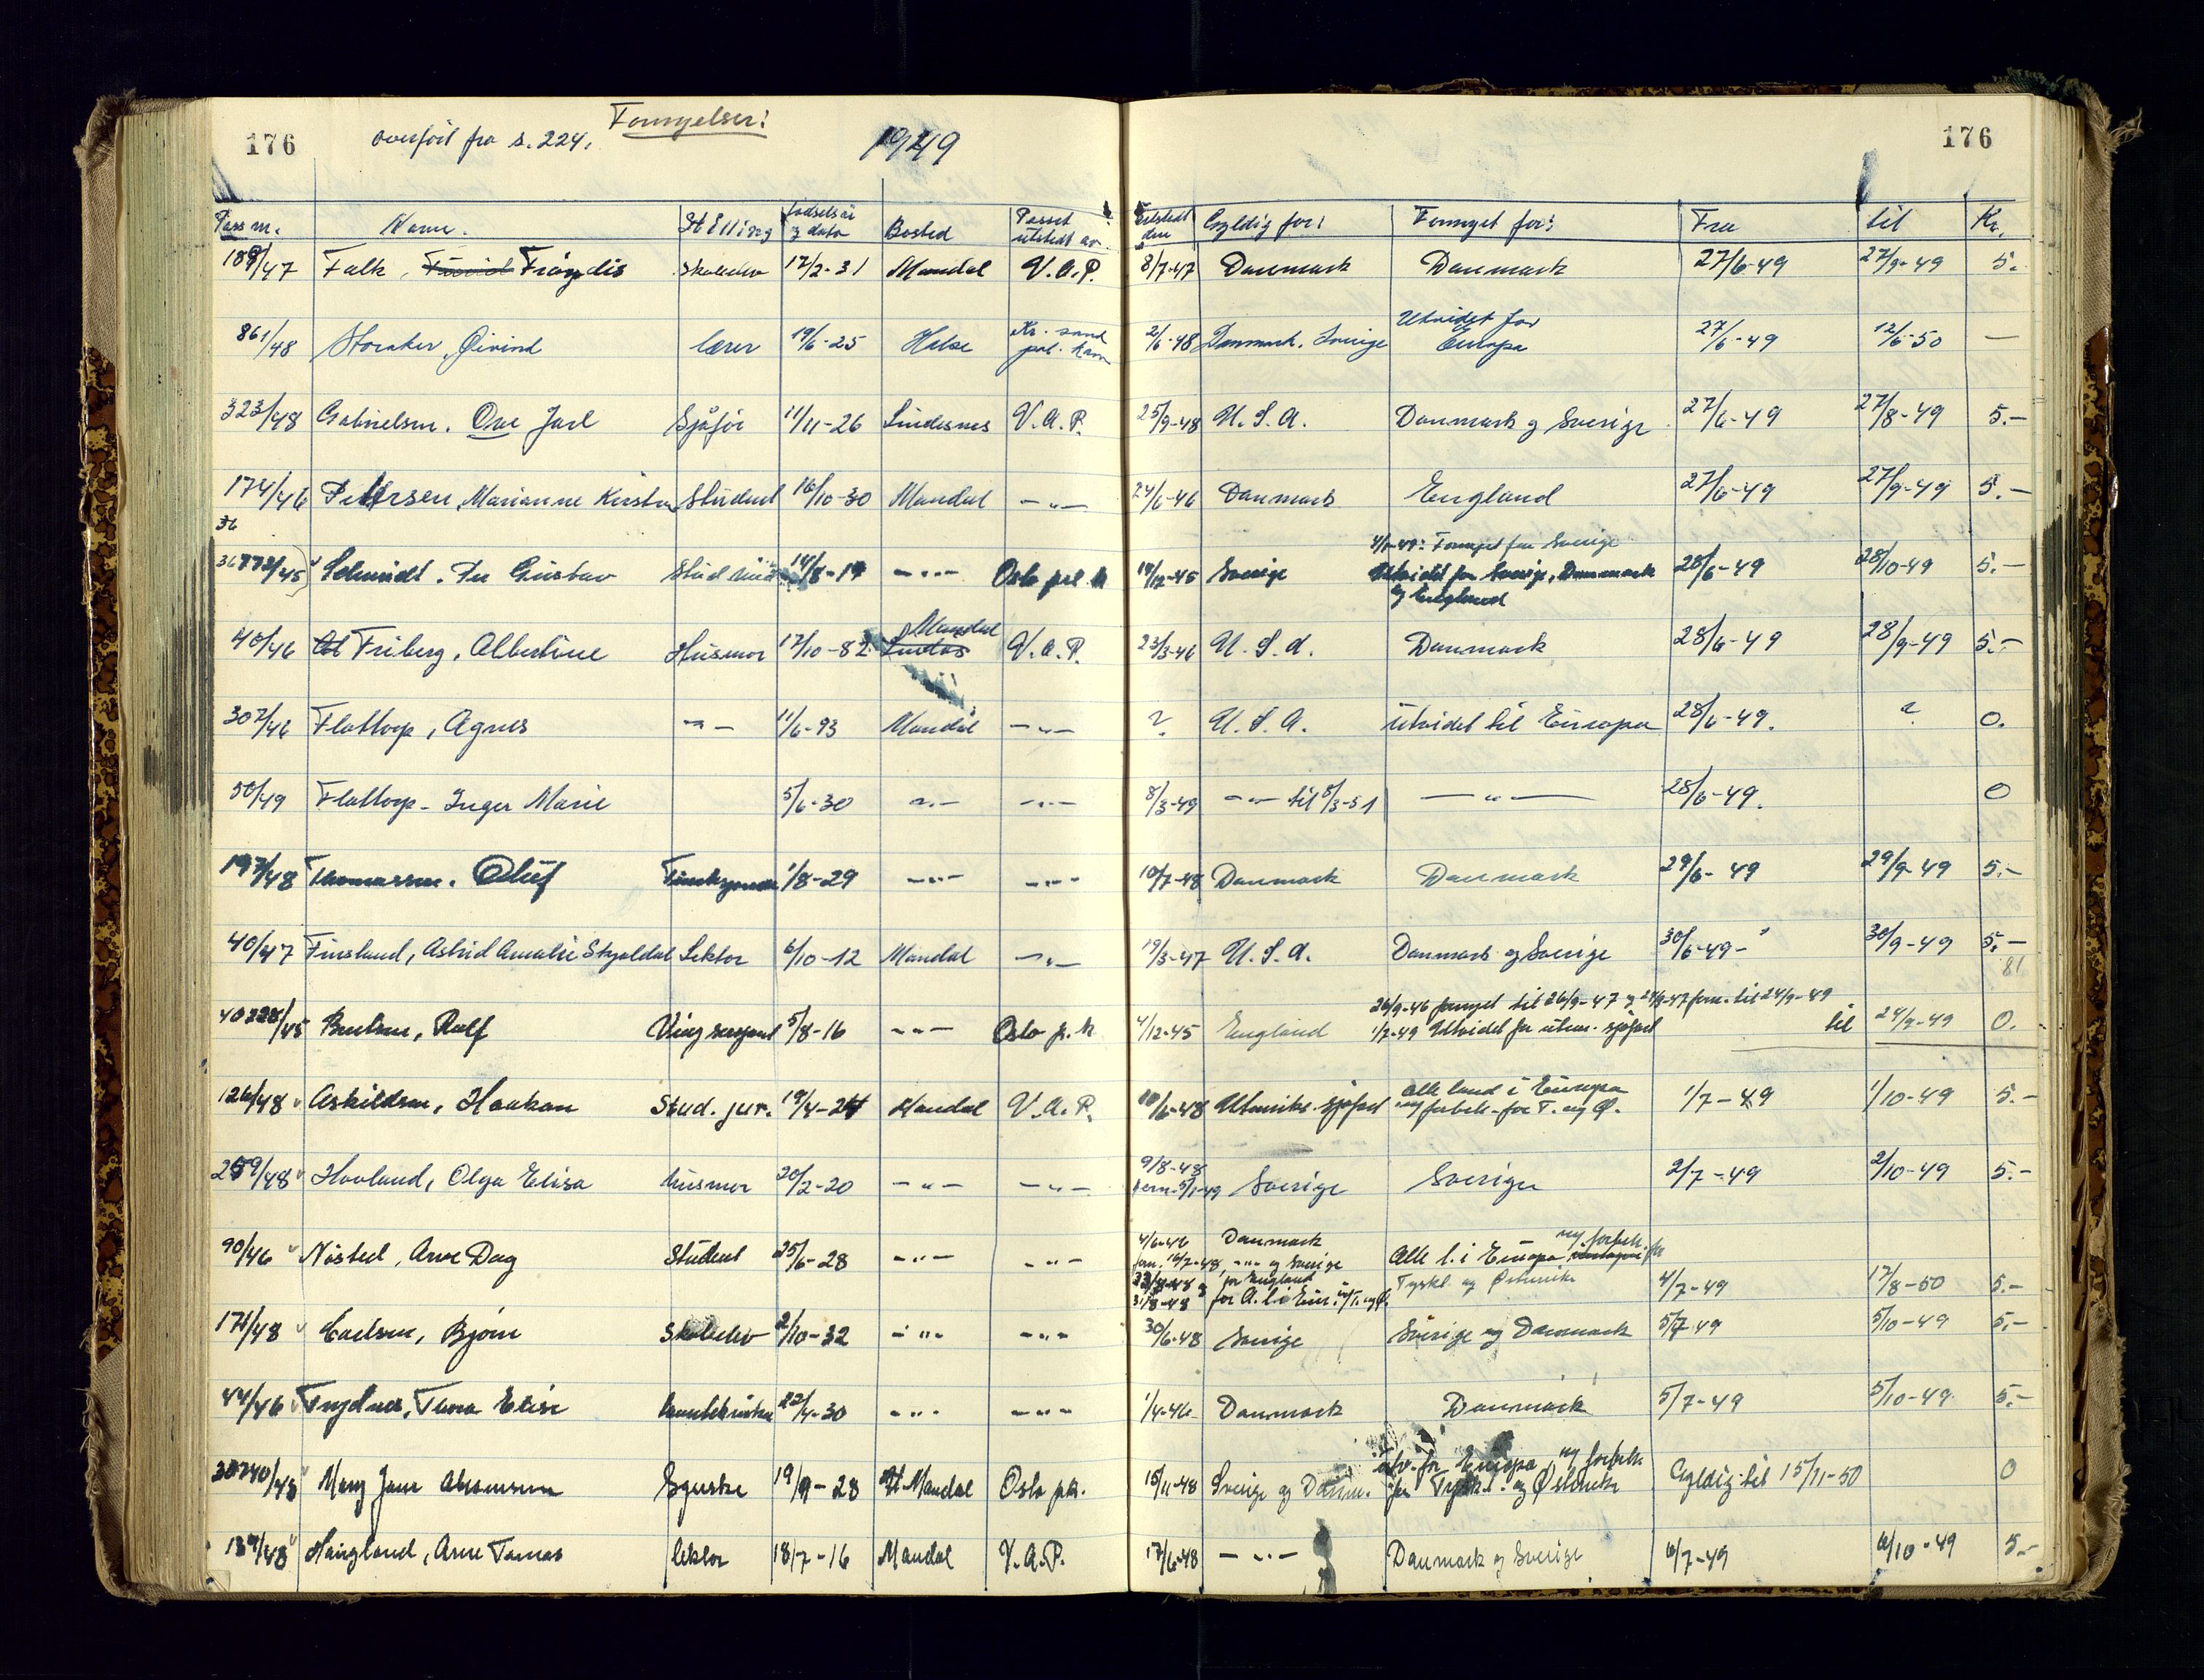 176 overført fra s. 224. Fornyelser: 1949 176
Pass nr. Navn. Stilling fødselsår og dato Bosted Passet utstedt av. Utstedt den Gyldig for: Fornyet for: Fra til Kr.
189/47 Falk, Frøydis Skoleelev 17/2-31 Mandal V.A.P. 8/7-47 Danmark Danmark 27/6-49 27/9-49 5.
861/48 Storaker, Øivind lærer 19/6-25 Halse Kr.sand pol. kam 2/6-48 Danmark, Sverige Utvidet for Europa 27/6-49 12/6-50 —
323/48 Gabrielsen, Ove Jarl Sjåfør 11/11-26 Lindesnes V.A.P. 25/9-48 U.S.A. Danmark og Sverige 27/6-49 27/8-49 5.-
174/46 Pettersen, Marianne Kirsten Student 16/10-30 Mandal -"- 24/6-46 Danmark England 27/6-49 27/9-49 5.-
36
36773/45 Schmidt, Per Gustav -"- Oslo pol. k 14/12-45 Sverige Fornyet for Sverige
Utvidet for Sverige, Danmark og England 28/6-49 28/10-49 5.-
40/46 Friberg, Albertine Husmor 17/10-82 Mandal V.A.P. 23/3-46 U.S.A. Danmark 28/6-49 28/9-49 5.-
307/46 Flottorp, Agnes -"- 11/6-93 Mandal -"- ? U.S.A. utvidet til Europa 28/6-49. ? 0.
50/49 Flottorp- Inger Marie 5/6-30 -"- -"- 8/3-49 -"- til 8/3-51 -"- 28/6-49. 0
197/48 Thomassen, Oluf 1/8-29 -"- -"- 10/7-48 Danmark Danmark 29/6-49 29/9-49 5.-
40/47 Finsland, Astrid Amalie Skjoldal Lektor 6/10-12 Mandal -"- 19/3-47 U.S.A. Danmark og Sverige 30/6-49- 30/9-49 5.-
81
40328/45 Bentsen, Rolf Ving sersjant 5/8-16 -"- Oslo p.k 4/12-45 England 26/9-46 fornyet til 26/9-47 og 24/9-47 forn. til 24/9-49
1/7-49 Utvidet for utenr. sjøfart til 24/9-49 0.
126/48 Askildsen, Haakon Stud. jur. 19/4-24 Mandal V.A.P. 10/6-48 Utenriks sjøfart Alle land i Europa
m/forbeh. for T. og Ø. 1/7-49 1/10-49 5.-
259/48 Hovland, Olga Elisa husmor 20/2-20 -"- -"- 9/8-48
forn. 5/1-49 Sverige Sverige 2/7-49 2/10-49 5.-
90/46 Nøsted, Arve Dag Student 25/6-28 -"- -"- 4/6-46 Danmark
forn. 16/7-48, -"- og Sverige Alle l. i Europa m/forbeh. for
23/8-48 og for England Tyskl. og Østerrike 4/7-49 17/8-50 5.-
31/8-48 for A. l. i Eur. m/T. og Ø.
171/48 Carlsen, Bjørn Skoleelev 2/10-32 -"- -"- 30/6-48 Sverige Sverige og Danmark 5/7-49 5/10-49 5.-
44/46 Thora Elise 22/4-30 -"- -"- 1/4-46 Danmark Danmark 5/7-49 5/10-49 5.-
30240/48 Mary Jane 19/9-28 H. Mandal Oslo pk. 15/11-48 Sverige og Danm. utv. for Europa, m/forbeh.
for Tyskl. og Østerrike Gyldig til 15/11-50 0
139/48 Haugland, Arne Tomas lektor 18/7-16 Mandal V.A.P. 17/6-48 -"- Danmark og Sverige 6/7-49 6/10-49 5.-